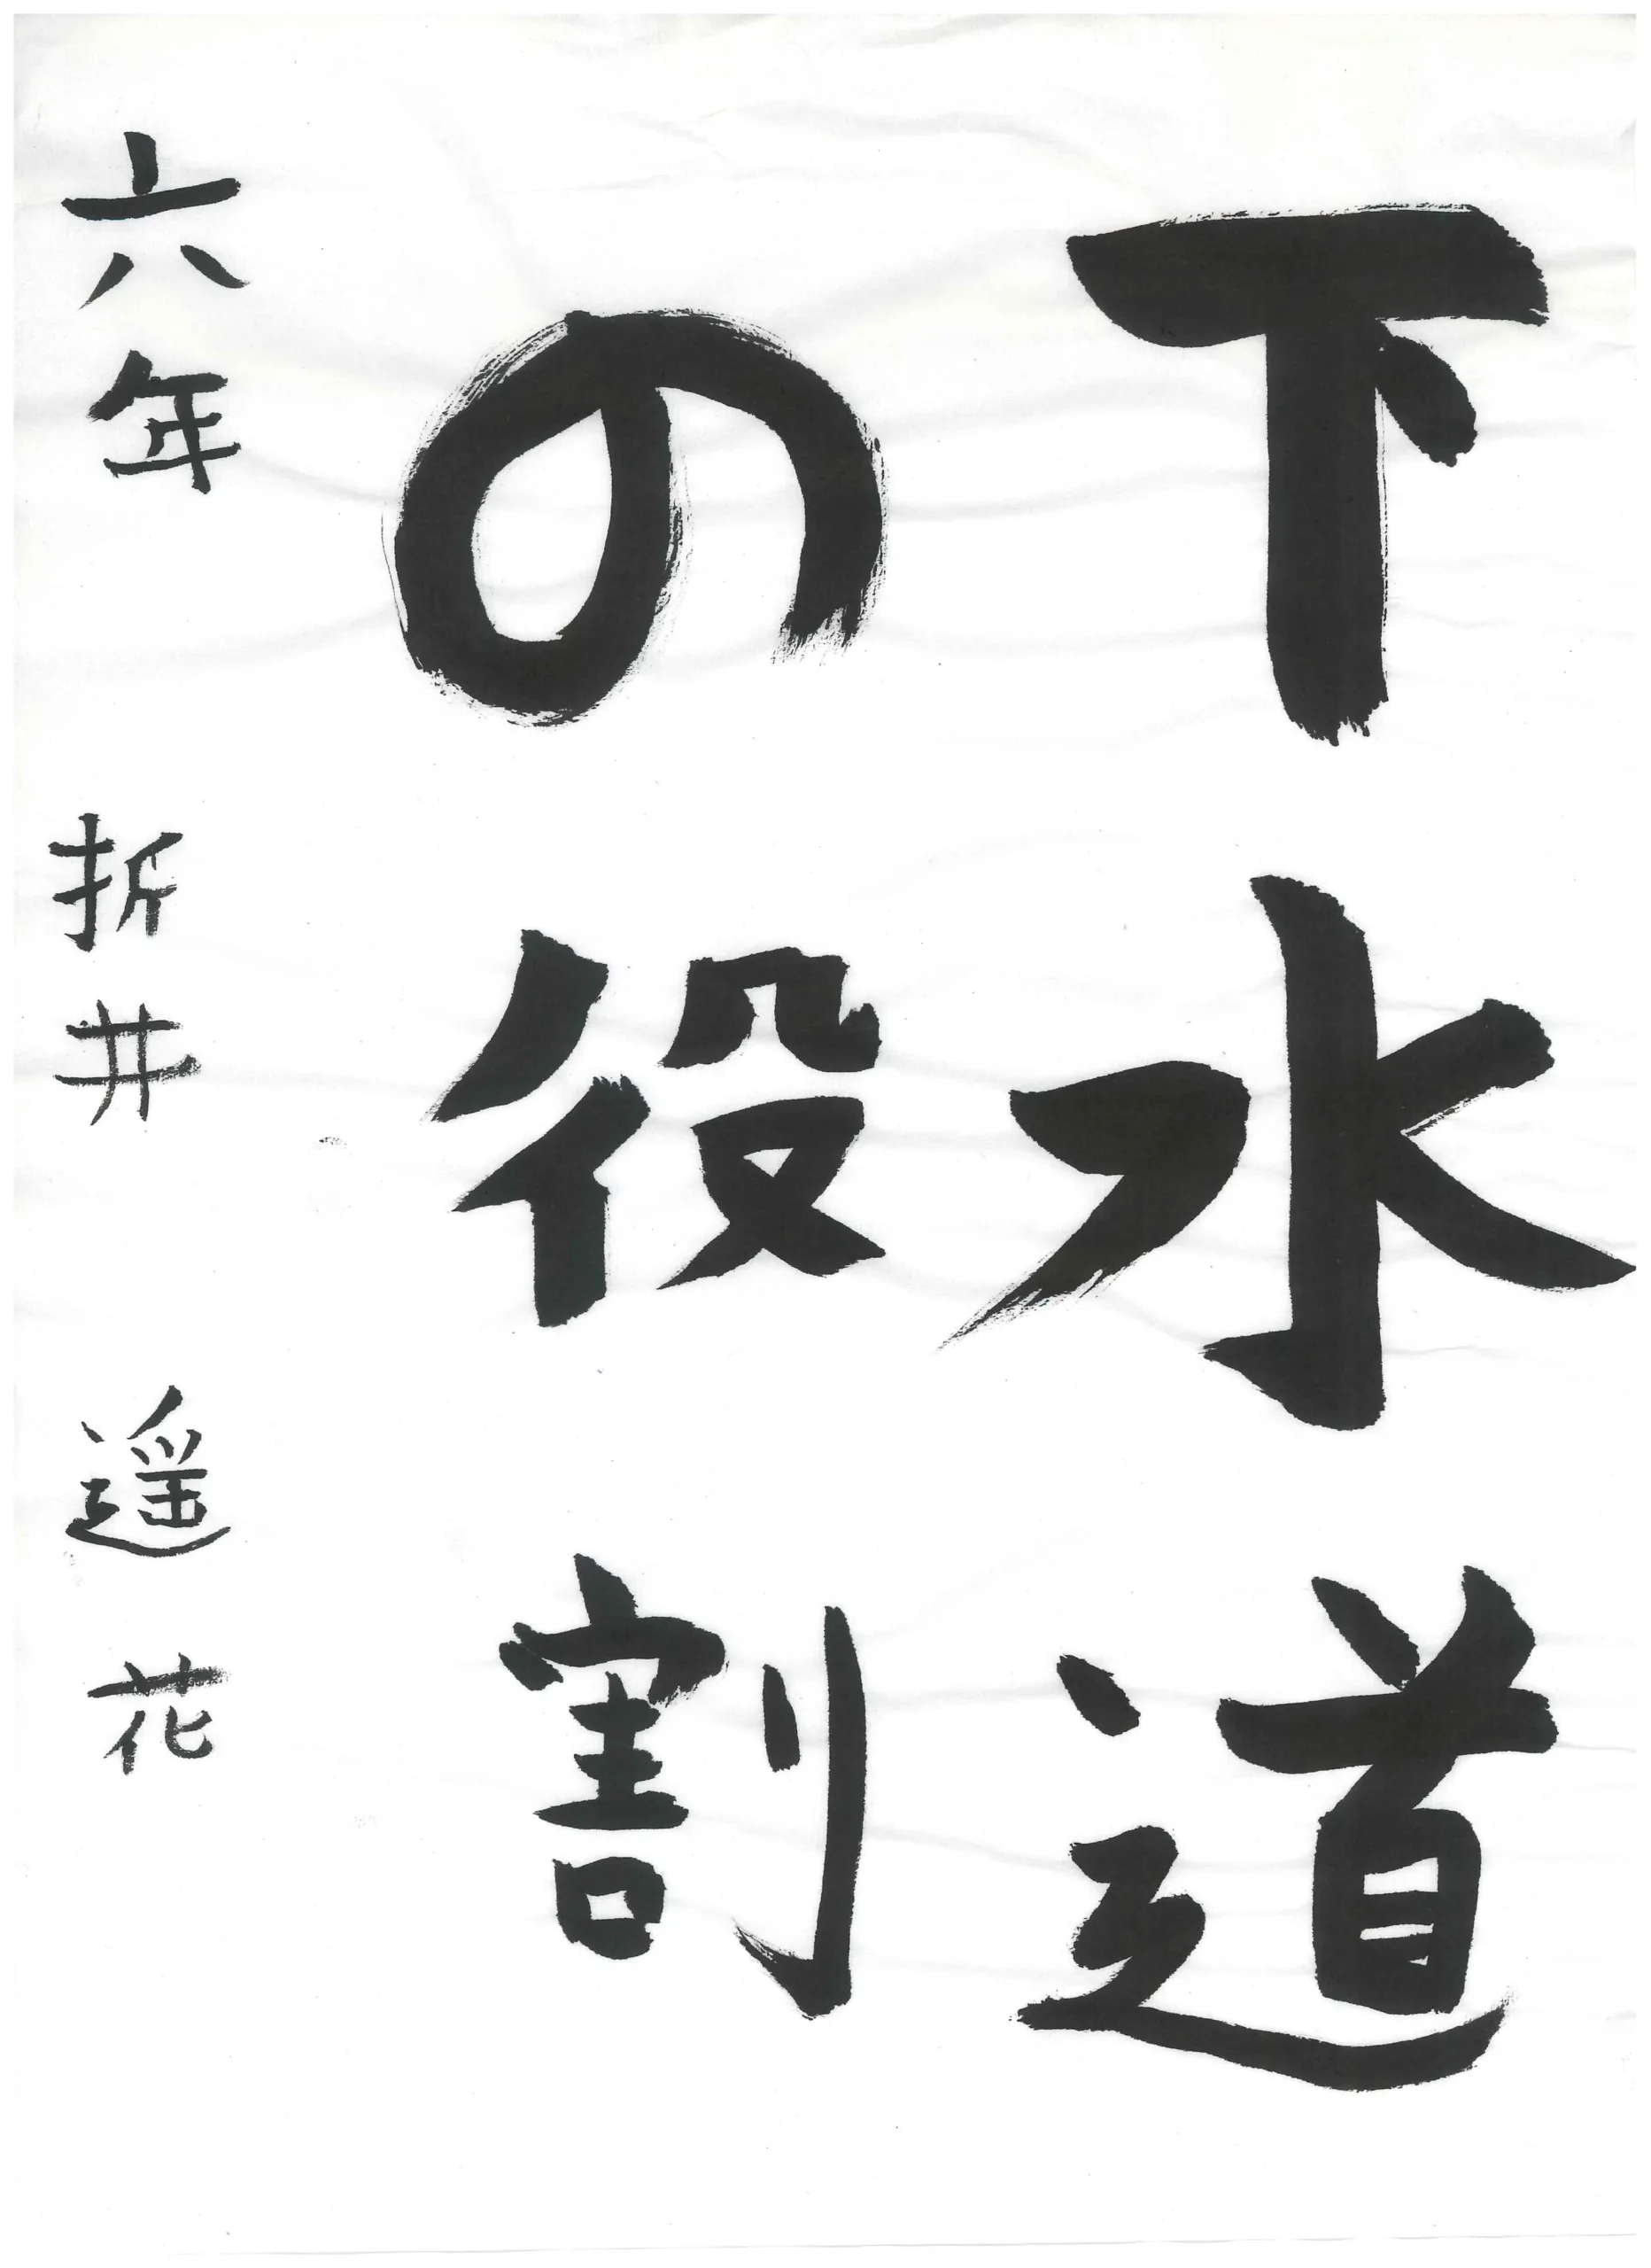 下水道
の役割
六年 折井 遥花